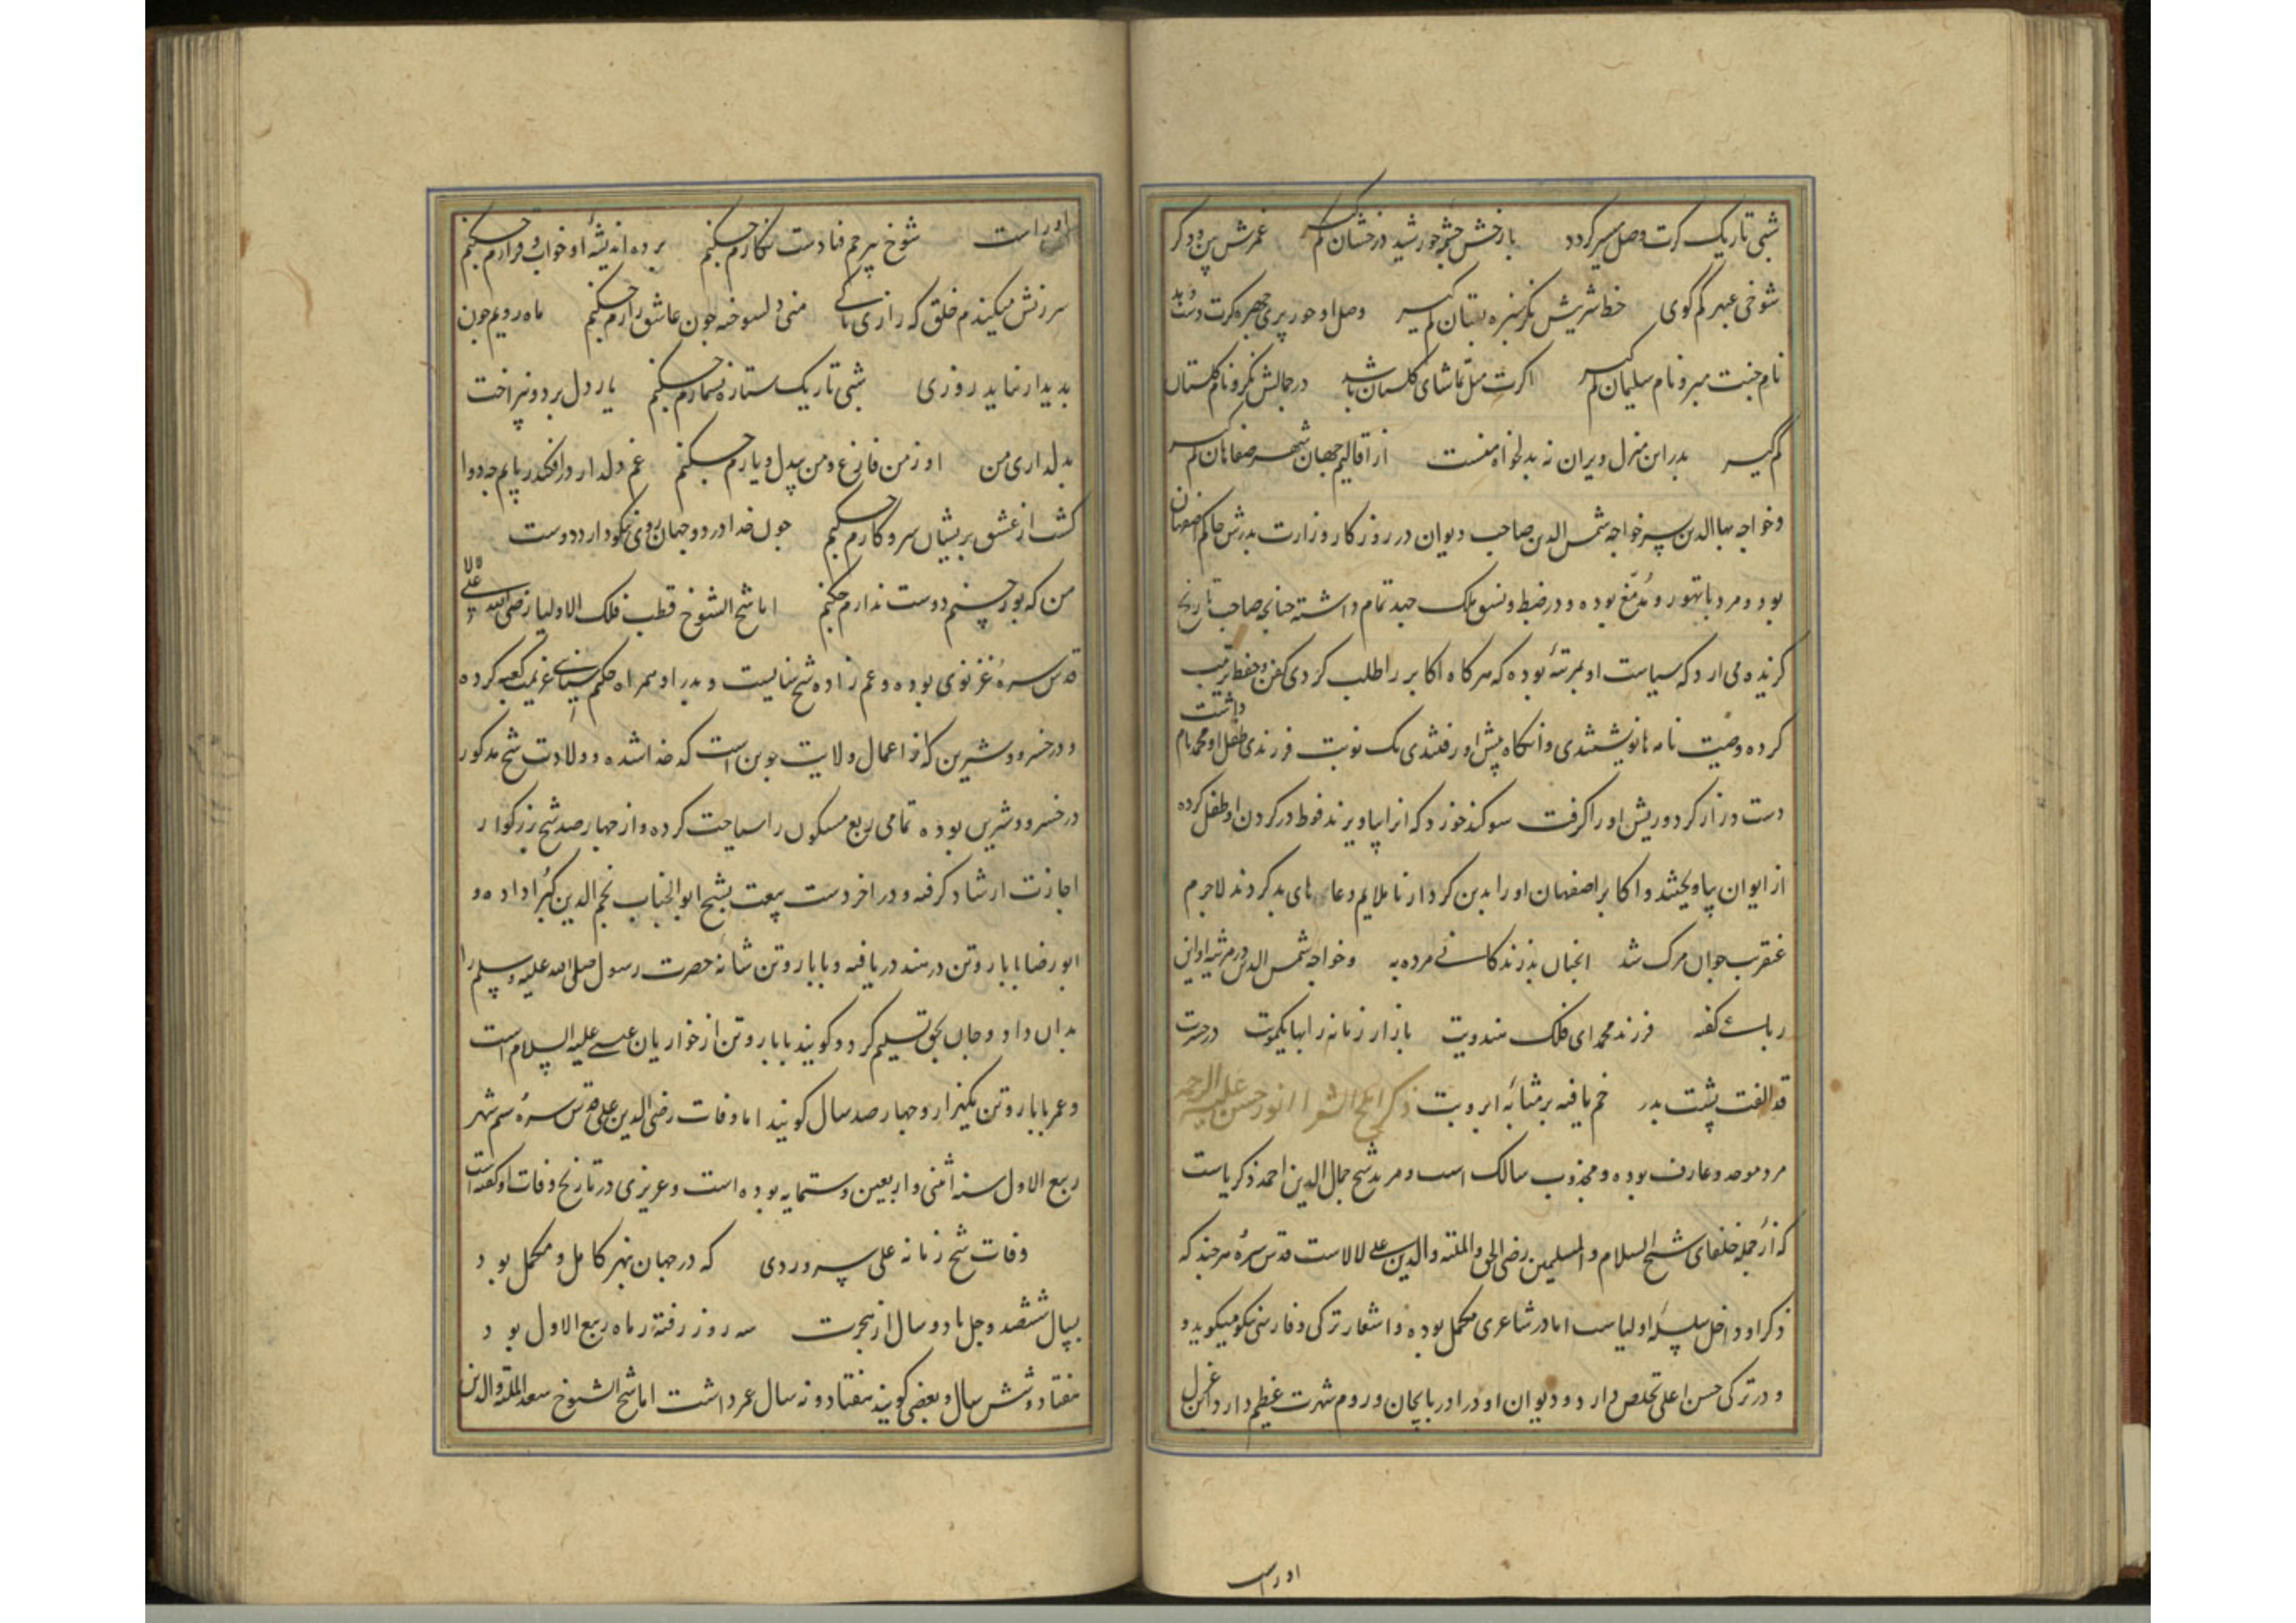 شبی تاریک کرت وصل میسر کردد بارخش چشمه خورشید درخشان کم کیر غمزش بین ودکر
شوخی عبهر کم کوی خط شیریش نکر سبزه بستان کم کیر وصل او حور پری چهره کرت دست دهد
نام جنت مبر و نام سلیمان کم کیر اکرت میل تماشای کلستان باشد در جمالش نکر و نام کلستان
کم کیر بدر این منزل ویران نه بدلخواه منست از اقالیم جهان شهر صفاهان کم کیر
وخواجه بهاالدین پسر خواجه شمس الدین صاحب دیوان در روزکار وزارت پدرش حاکم اصفهان
بود ومرد باتهور و مدمغ بوده و در ضبط و نسق ملک جهد تمام داشته چنانچه صاحب تاریخ
کزیده می ارد که سیاست او بمرتبه بوده که هر کاه اکابر را طلب کردی کفن وحنوط ترتیب
کرده وصیت نامه نانوشتندی وانکاه پیش او رفتندی یک نوبت فرزندی طفل او محمد نام داشت
دست دراز کرد وریش او را کرفت سوکند خورد که انرا بیاویزند فوطه در کردن او طفل کرده
از ایوان بیاویختند و اکابر اصفهان او را بدین کردار ناملایم دعا های بد کردند لاجرم
عنقریب جوان مرک شد انچنان بد زندکانی مرده به وخواجه شمس الدین در مرثیه او این
رباعی کفته فرزند محمد ای فلک هندویت بازار زمانه را بها یکمویت در حسرت
قد الفت پشت پدر خم یافته بر مثابه ابرویت ذکر املح الشعرا پور حسن علیه الرحمه
مرد موحد و عارف بوده و مجذوب سالک است و مرید شیخ جمال الدین احمد ذکریاست
که از جمله خلفای شیخ السلام و المسلمین رضی الحق والملة والدین علی لالاست قدس سره هرچند که
ذکر او داخل سلسله اولیاست اما در شاعری مکمل بوده و اشعار ترکی و فارسی نکو میکوید و
و در ترکی حسن اغلی تخلص دارد و دیوان او در اذربایجان و روم شهرت عظیم دارد این غزل
اوراست
اوراست شوخ بیرحم فتادست نکارم چکنم برده اندیشه او خواب و قرارم چکنم
سرزنش میکنندم خلق که زاری تا کی منی دلسوخته چون عاشق زارم چکنم ماه رویم چون
بدیدار نماید روزی شبی تاریک ستاره نشمارم چکنم یار دل برد و نپراخت
بدلداری من او ز من فارغ و من بیدل و یارم چکنم غم دلدار درافکند ز پایم چه دوا
کشت از عشق پریشان سر و کارم چکنم چون خدا در دو جهان روی نکو دارد دوست
من که پور حسنم دوست ندارم چکنم اما شیخ الشیوخ قطب فلک الاولیا رضی الدین علی لالا
قدس سره غزنوی بوده و عم زاده شیخ سنائیست و پدر او همراه حکیم سنائی عزیمت کعبه کرده
و در خسرو وشیرین که از اعمال ولایت جوین است کدخدا شده و ولادت شیخ مذکور
در خسرو وشیرین بوده تمامی ربع مسکون را سیاحت کرده و از چهار صد شیخ بزرکوار
اجازت ارشاد کرفته و در اخر دست بیعت بشیخ ابو الجناب نجم الدین کبرا داده و
ابو رضا بابا روتن در هند دریافته و بابا روتن شانه حضرت رسول صلی الله علیه وسلم را
بدان داد و جان بحق تسلیم کرد و کویند بابا روتن از حواریان عیسی علیه السلام است
و عمر بابا روتن یکهزار و چهارصد سال کویند اما وفات رضی الدین علی قدس سره سیم شهر
ربیع الاول سنه اثنی و اربعین و ستمایه بوده است و عزیزی در تاریخ وفات او کفته است
وفات شیخ زمانه علی که در جهان بهنر کامل و مکمل بود
بسال ششصد و چل با دو سال از هجرت سه روز رفته ز ماه ربیع الاول بود
هفتاد و شش سال و بعضی کویند هفتاد و نه سال عمر داشت اما شیخ الشیوخ سعد الملة والدین